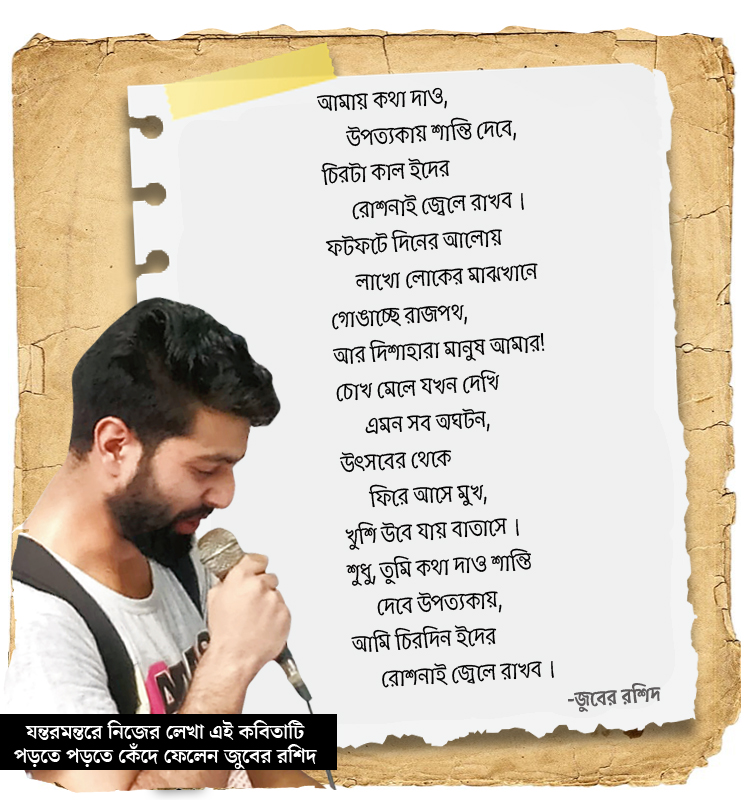 আমায় কথা দাও,
উপত্যকায় শান্তি দেবে,
চিরটা কাল ইদের
রোশনাই জ্বেলে রাখব ।
ফটফটে দিনের আলোয়
লাখো লোকের মাঝখানে
গোঙাচ্ছে রাজপথ,
আর দিশাহারা মানুষ আমার!
চোখ মেলে যখন দেখি
এমন সব অঘটন,
উৎসবের থেকে
ফিরে আসে মুখ,
খুশি উবে যায় বাতাসে ।
শুধু, তুমি কথা দাও শান্তি
দেবে উপত্যকায়,
আমি চিরদিন ইদের
রোশনাই জ্বেলে রাখব ।
-জুবের রশিদ
যন্তরমন্তরে নিজের লেখা এই কবিতাটি
পড়তে পড়তে কেঁদে ফেলেন জুবের রশিদ